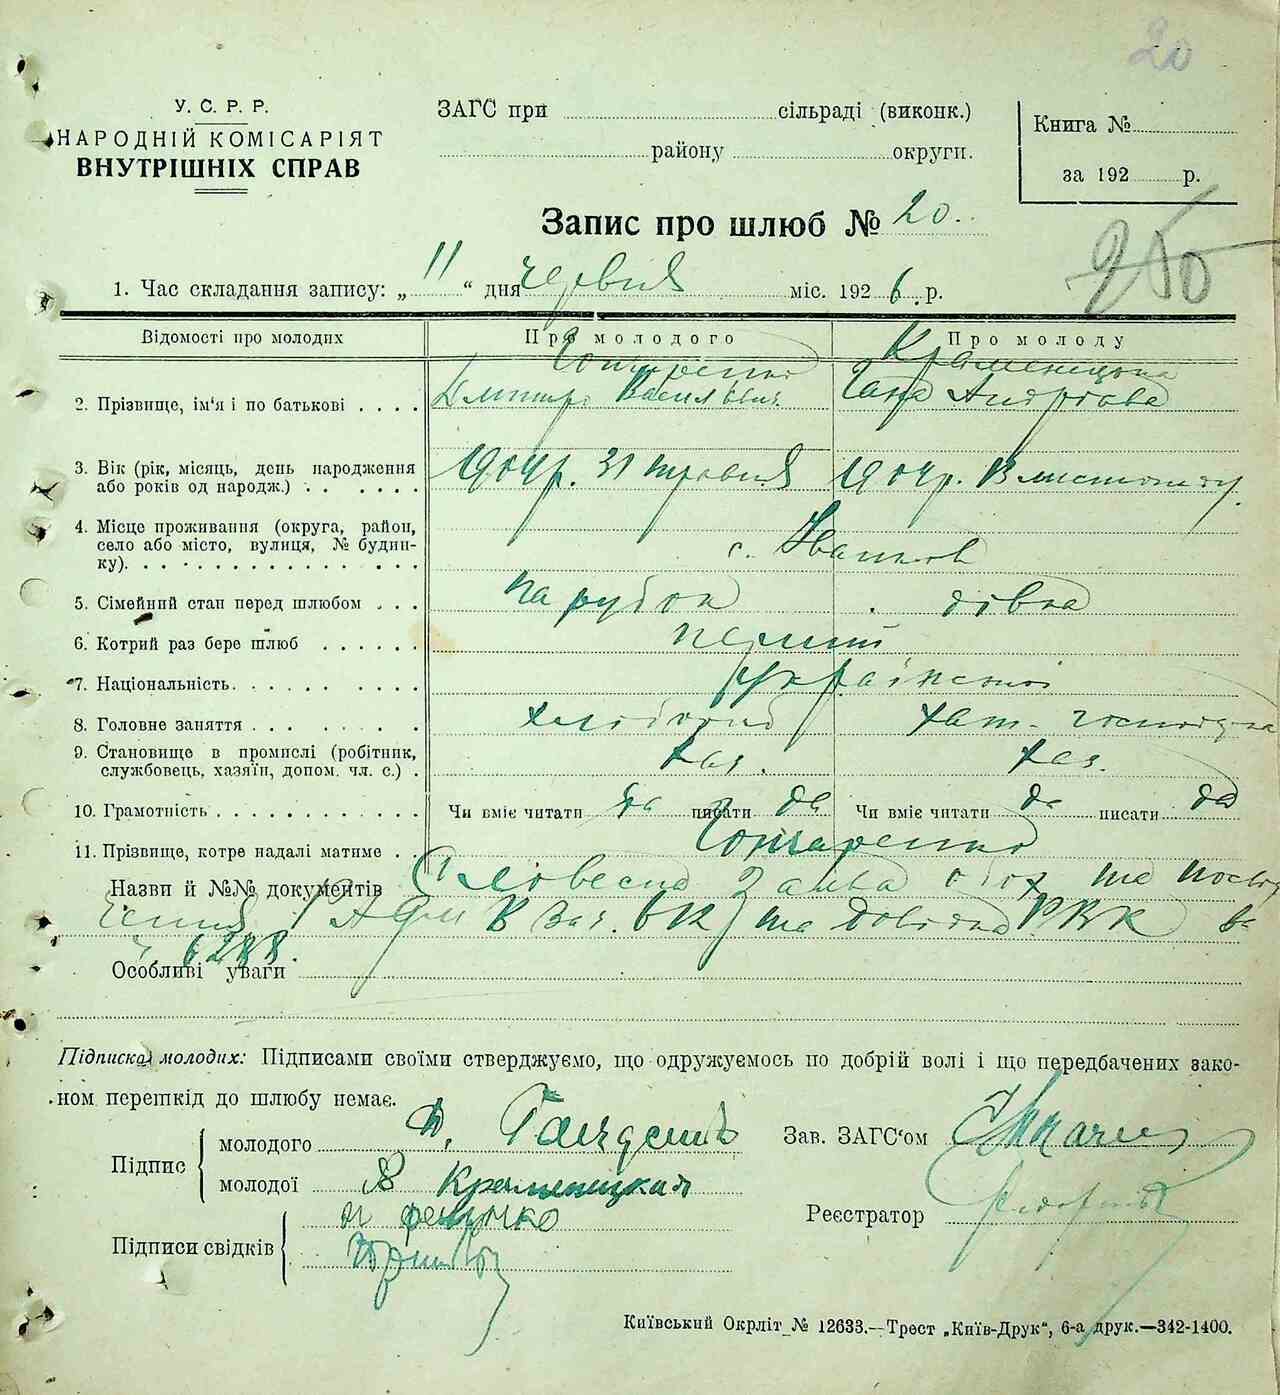 20
У. С. Р. Р.
НАРОДНІЙ КОМІСАРІЯТ
ВНУТРІШНІХ СПРАВ
ЗАГС при сільраді (виконк.)
району округи.
Книга №
за 192 р.
Запис про шлюб № 20.
250
1. Час складання запису: „ 11 “ дня червня міс. 1926 р.
Відомості про молодих Про молодого Про молоду
Гончаренко Кременецька
2. Прізвище, ім'я і по батькові . . . . Дмитро Васильович Ганна Андріївна
3. Вік (рік, місяць, день народження
або років од народж.) . . . . . . 1904р. 31 травня 1904р. 13 листопаду.
4. Місце проживання (округа, район,
село або місто, вулиця, № будин-
ку). . . . . . . . . . . . . . . . с. Івашков
5. Сімейний стан перед шлюбом . . . парубок дівка
6. Котрий раз бере шлюб . . . . . . перший
7. Національність. . . . . . . . . . української
8. Головне заняття . . . . . . . . . хлібороб хат. господарка
9. Становище в промислі (робітник,
службовець, хазяїн, допом. чл. с.) . хаз. хаз.
10. Грамотність . . . . . . . . . . . Чи вміє читати да писати да Чи вміє читати да писати да
11. Прізвище, котре надалі матиме . . Гончаренко
Назви й №№ документів Словесна заява обох та
та довідка РВК за
ч. 6288.
Особливі уваги
Підписка молодих: Підписами своїми стверджуємо, що одружуємось по добрій волі і що передбачених зако-
ном перешкід до шлюбу немає.
Підпис
молодого Д.
молодої Кременицкая
Підписи свідків
Зав. ЗАГС'ом
Реєстратор
Київський Окрліт № 12633.—Трест „Київ-Друк“, 6-а друк.—342-1400.